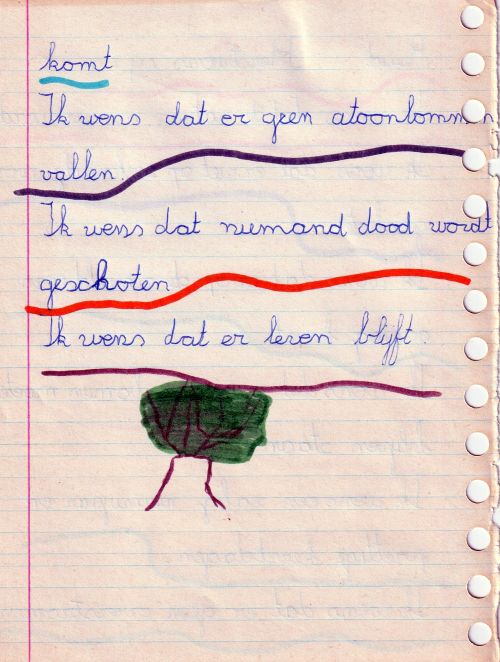 komt
Ik wens dat er geen atoonbommen
vallen.
Ik wens dat niemand dood wordt
geschoten
Ik wens dat er leven blijft.